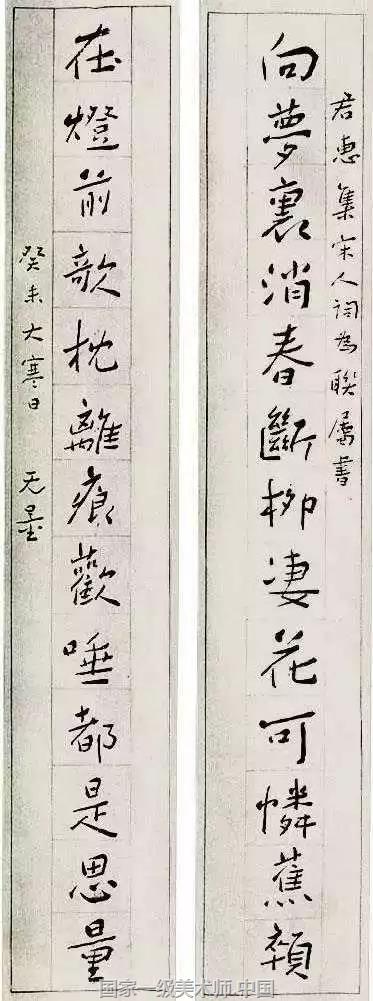 君惠集宋人詞為聯屬書
向夢裏消春斷柳凄花可憐蕉顇
在燈前欹枕離痕歡唾都是思量
癸未大寒日 无量
国家一级美术师.中国